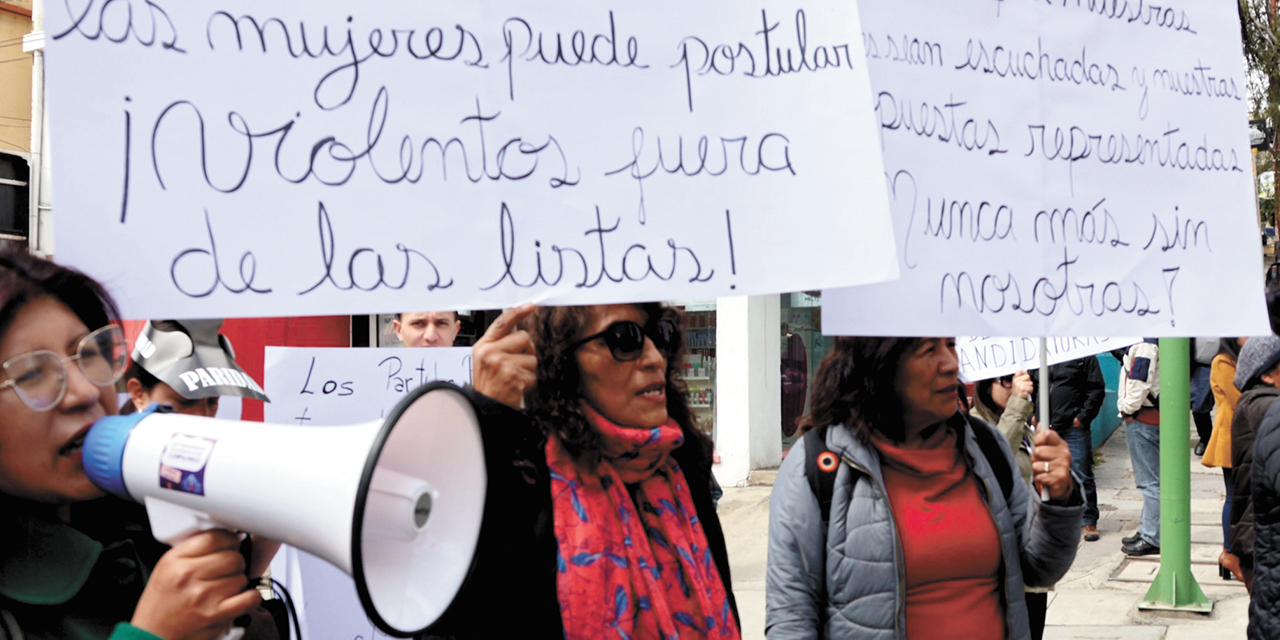 las mujeres puede postular
¡Violentos fuera
de las listas!
nuestras
sean escuchadas y nuestras
puestas representadas
Nunca más sin
nosotras!
Los Partid
PARIDA
ANDIDATURAS